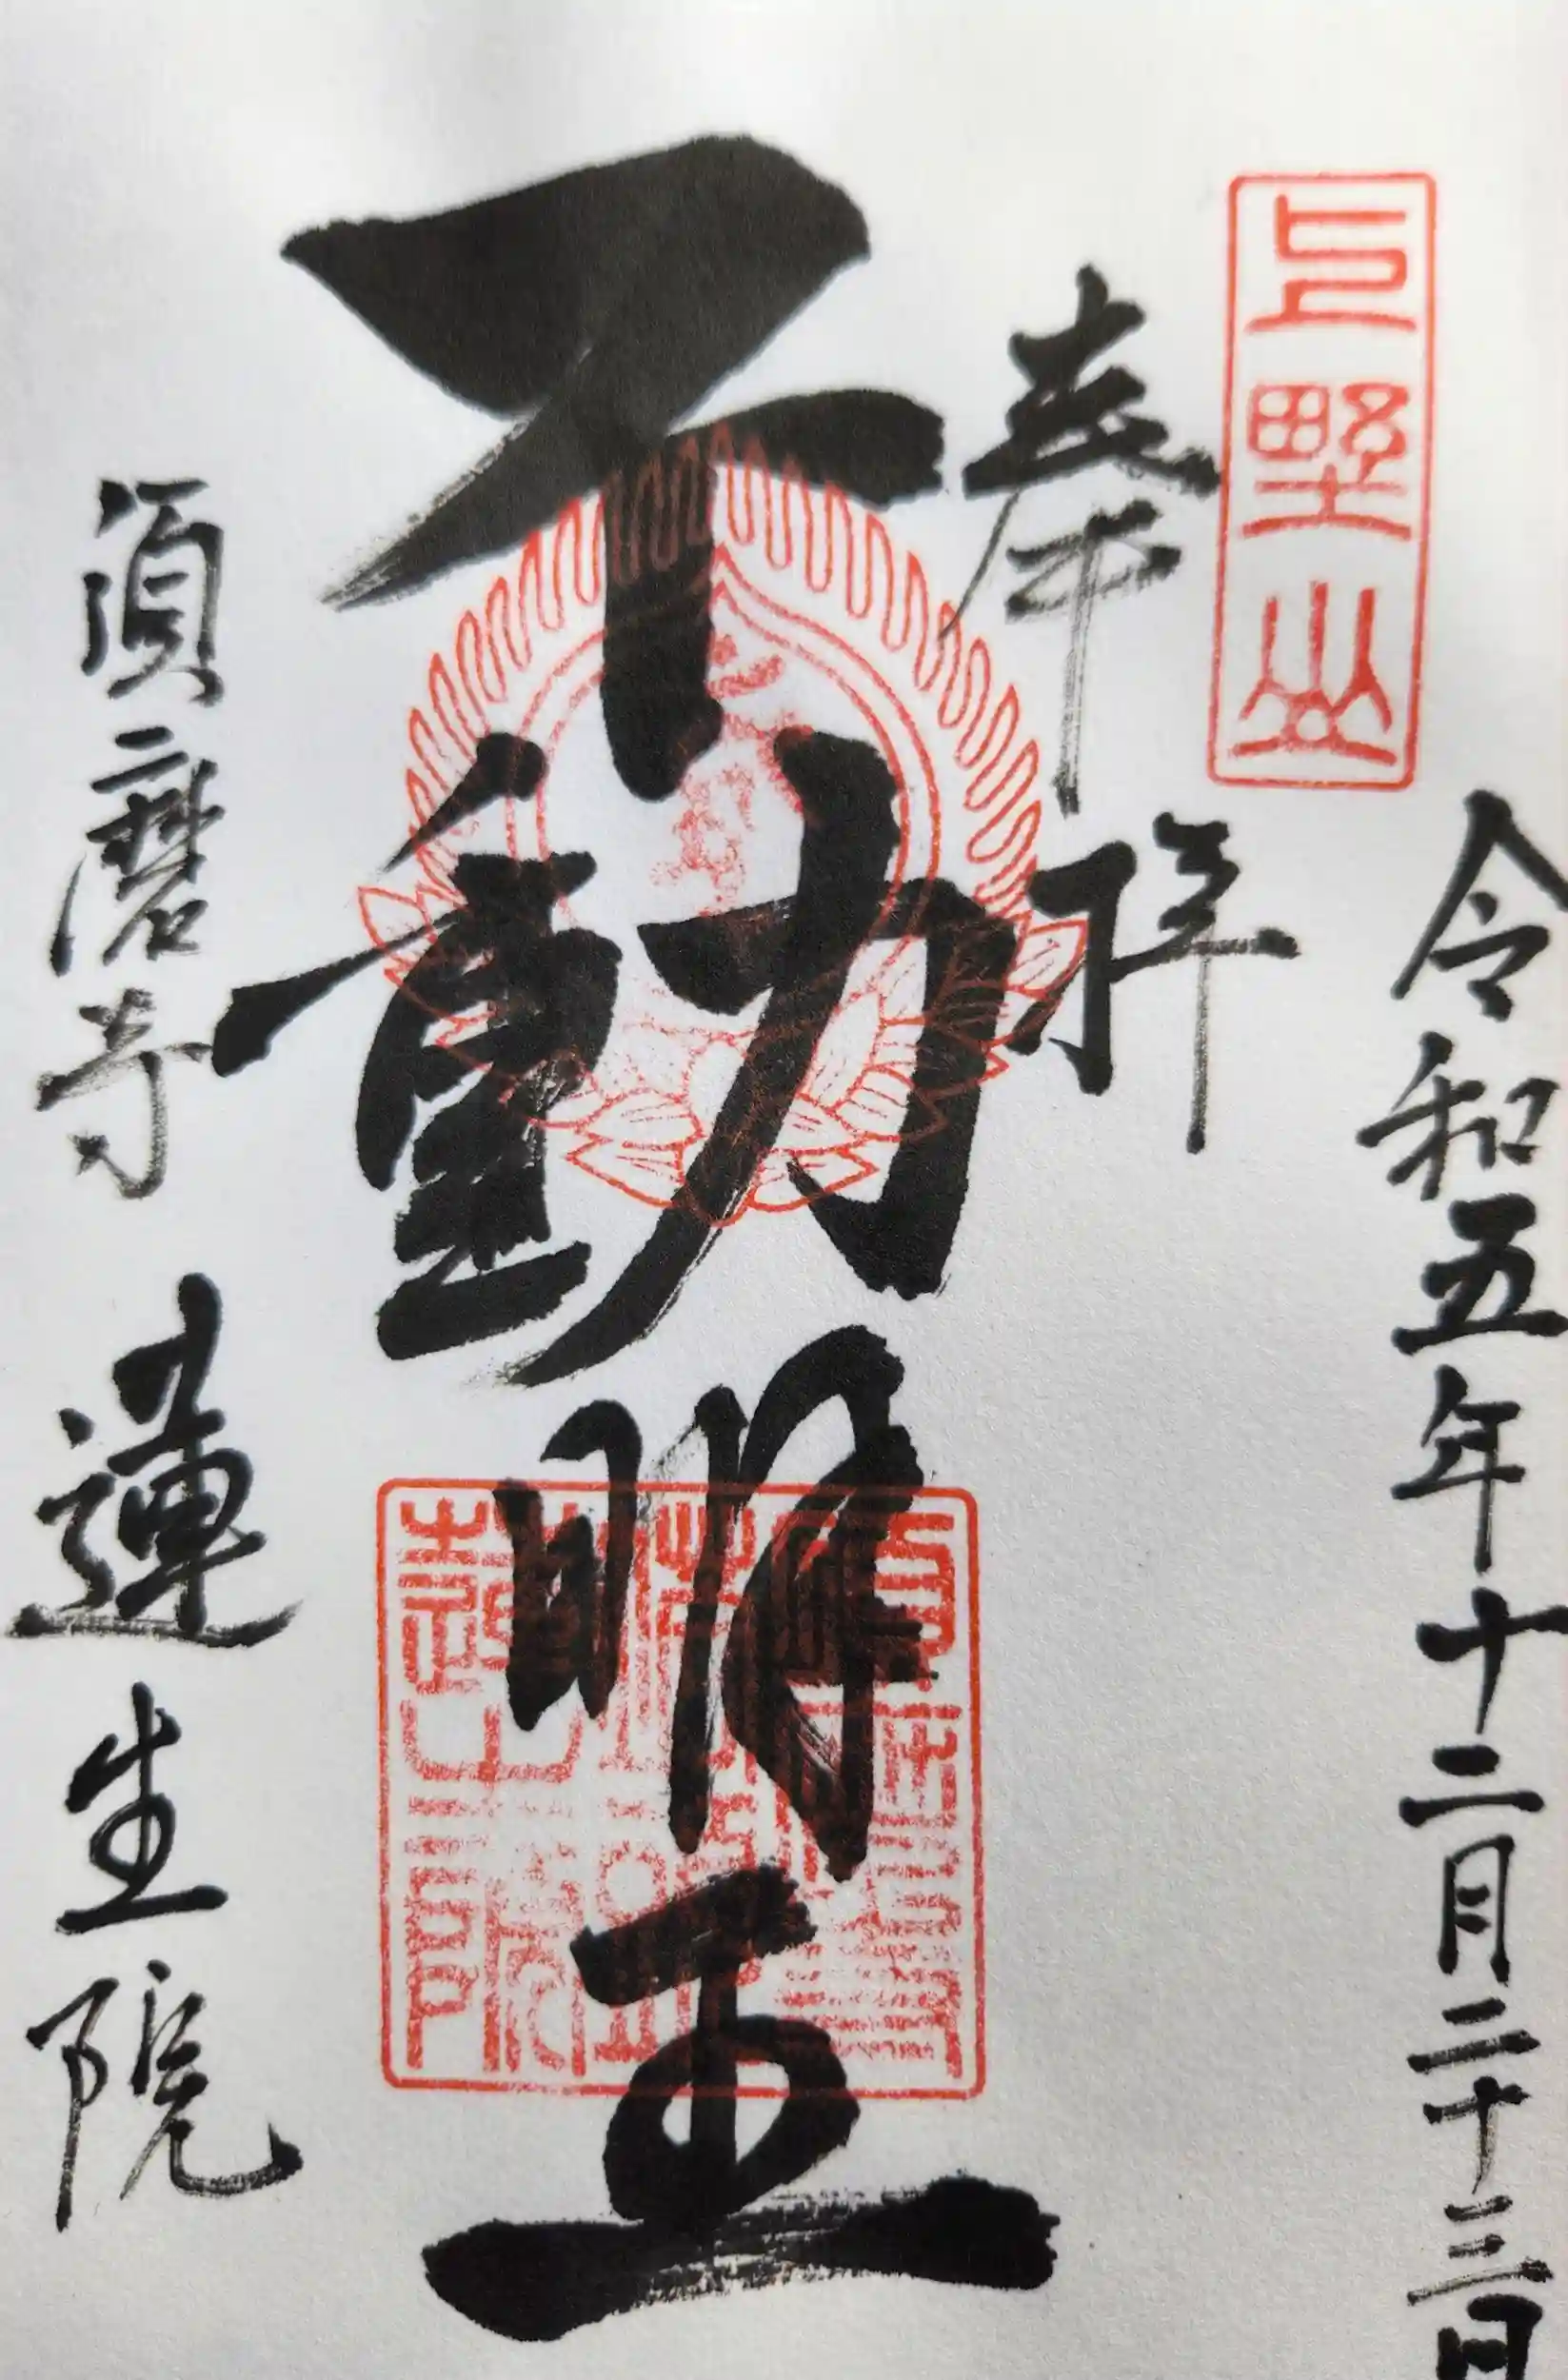 令和五年十二月二十三日
上野山
奉拝
不動明王
須磨寺 蓮生院